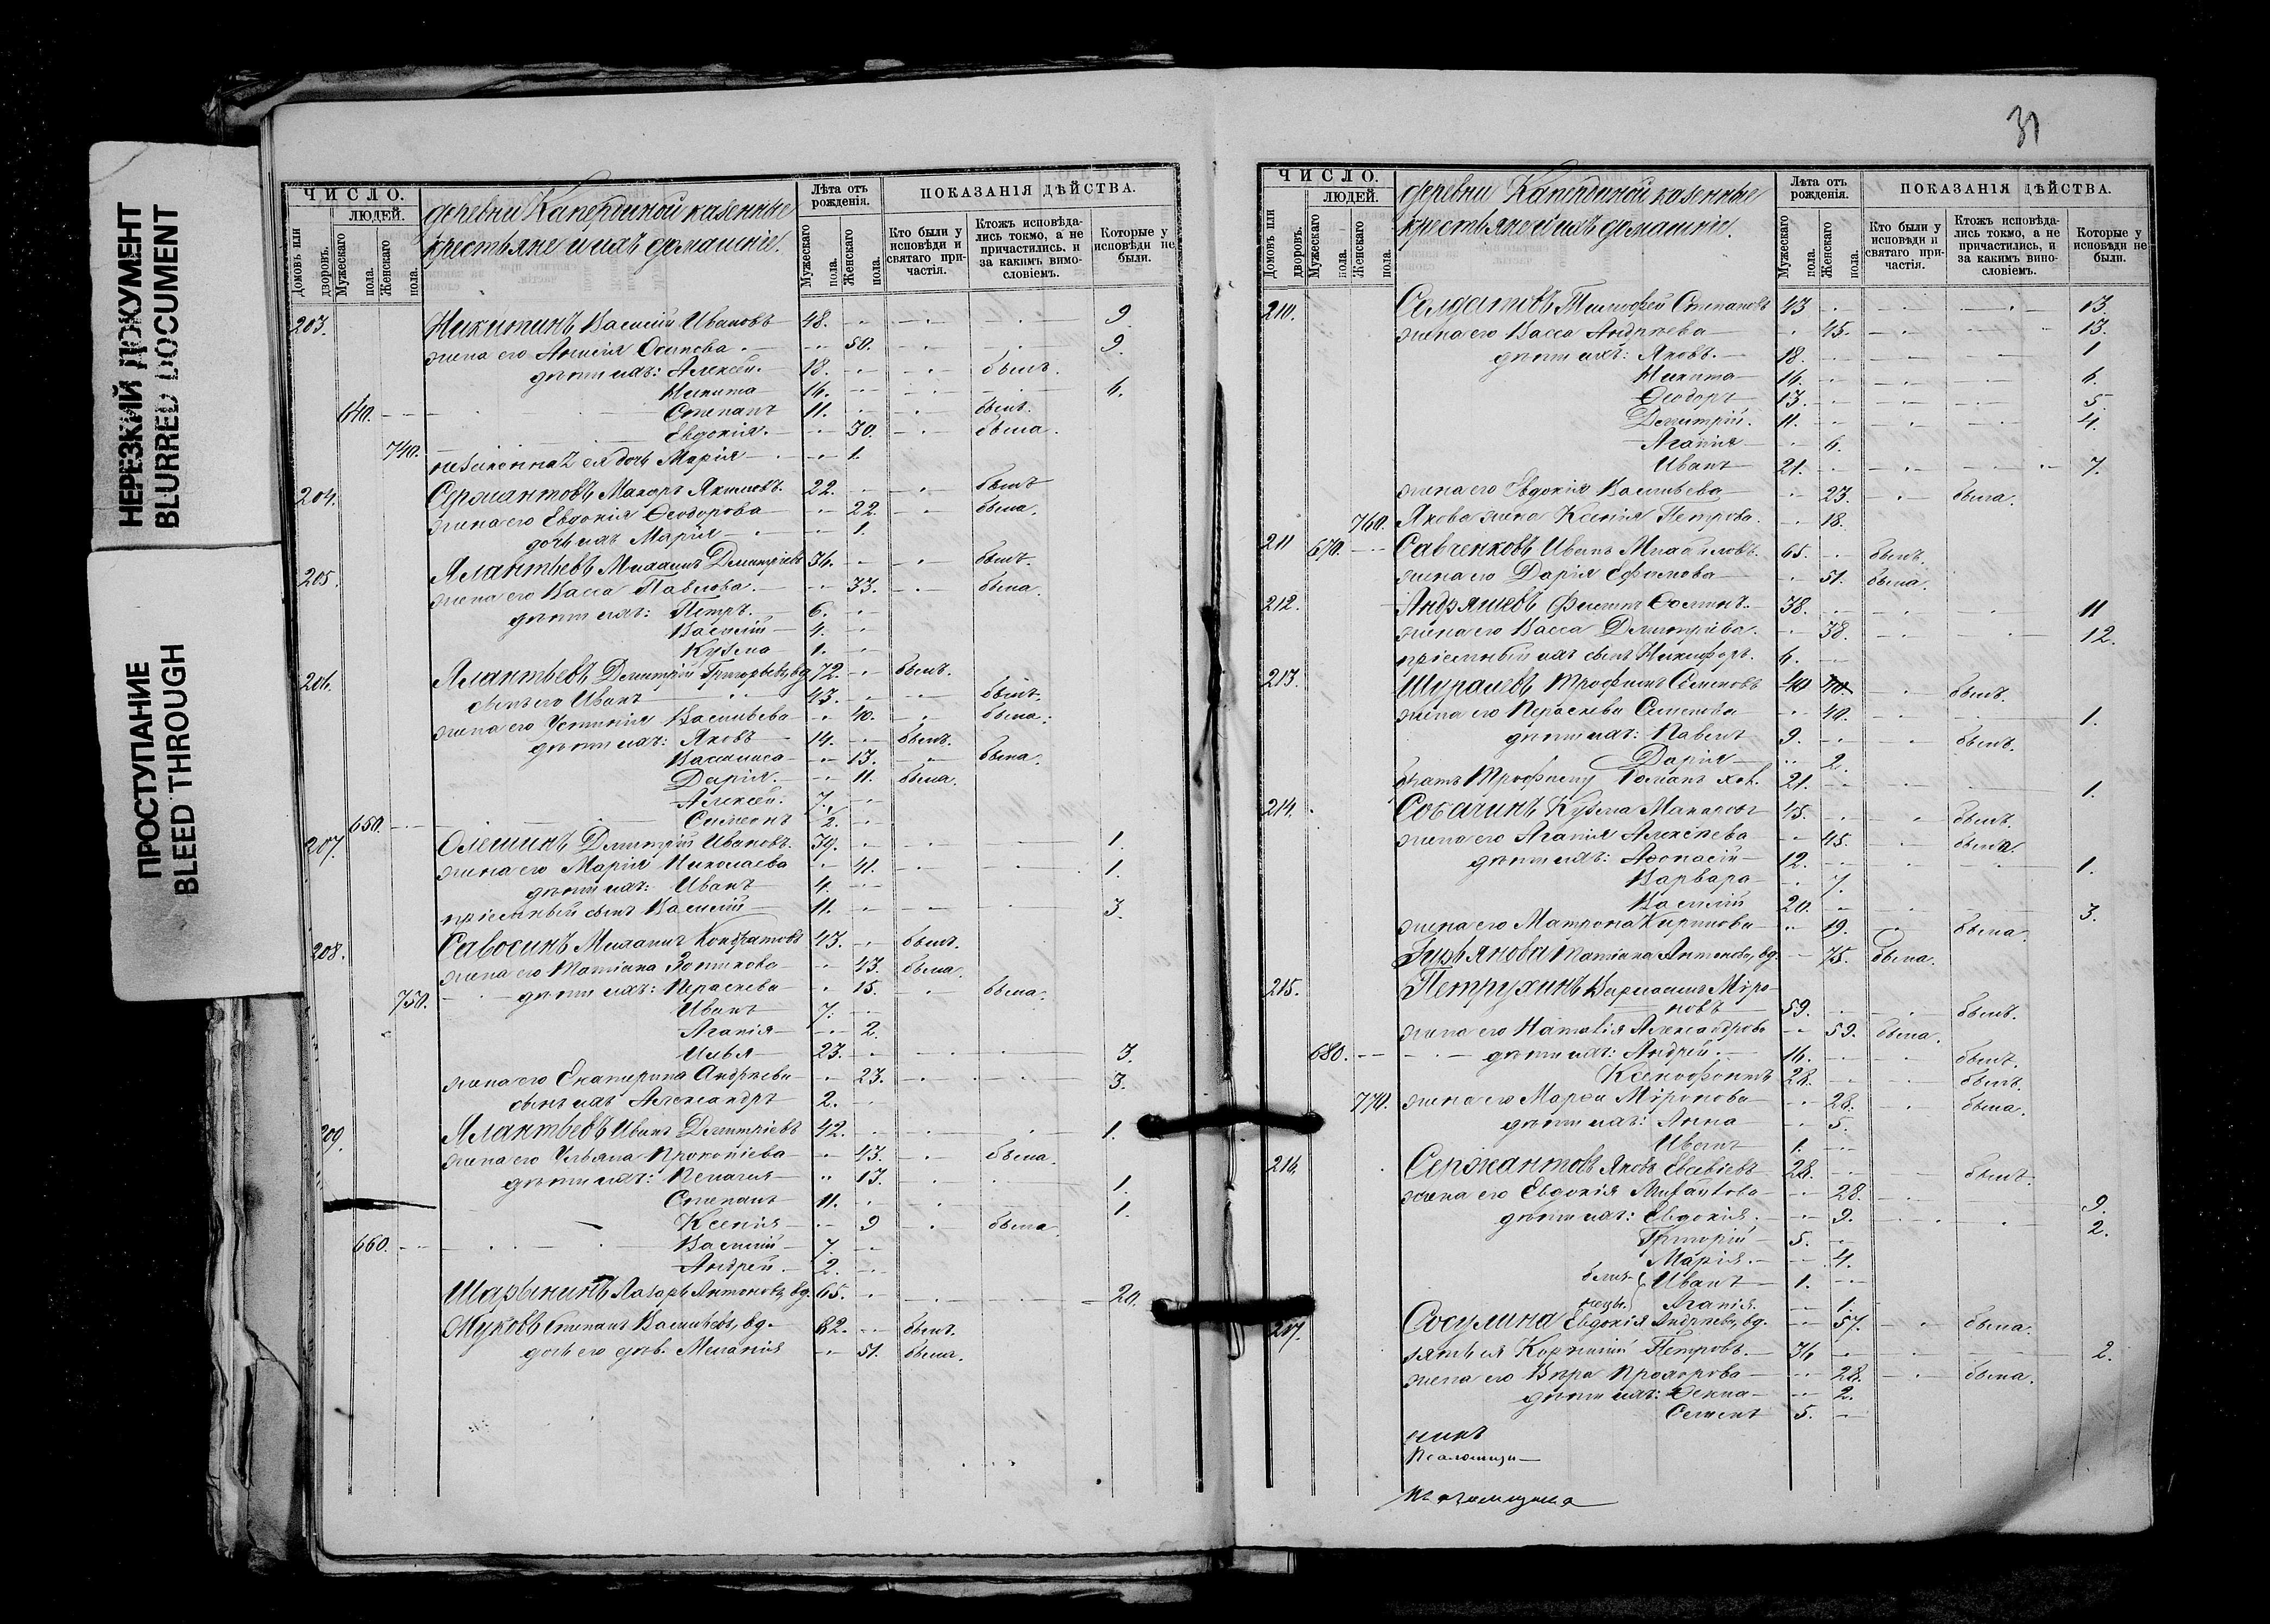 НЕРЕЗКИЙ ДОКУМЕНТ
BLURRED DOCUMENT
ПРОСТУПАНИЕ
BLEED THROUGH
ЧИСЛО.
ЛЮДЕЙ.
Домовъ или дворовъ.
Мужескаго пола.
Женскаго пола.
деревни Капердиной казенные
крестьяне и ихъ домашніе.
Лѣта отъ рожденія.
Мужескаго пола.
Женскаго пола.
ПОКАЗАНІЯ ДѢЙСТВА.
Кто были у исповѣди и святаго причастія.
Ктожъ исповѣдались токмо, а не причастились, и за какимъ винословіемъ.
Которые у исповѣди не были.
203. Никитинъ Василій Ивановъ 48. 9
жена его Анисія Осипова 50. 9.
дѣти ихъ: Алексѣй 18. былъ.
Никита 14. 4.
640. Степанъ 11. былъ.
Евдокія 30. была.
740. незаконная ея дочь Марія 1.
204. Сержантовъ Макаръ Якимовъ 22. былъ
жена его Евдокія Ѳеодорова 22. была.
дочь ихъ Марія 1.
205. Ялантьевъ Михаилъ Димитріевъ 34. былъ.
жена его Васса Павлова 33. была.
дѣти ихъ: Петръ 6.
Василій 4.
Кузьма 1.
206. Ялантьевъ Димитрій Григорьевъ, вд. 72. былъ.
сынъ его Иванъ 43. былъ.
жена его Устинія Васильева 40. была.
дѣти ихъ: Яковъ 14. былъ.
Васса 13. была.
Дарія 11. была.
Алексѣй 7.
650. Симеонъ 2.
207. Олешинъ Димитрій Ивановъ 39. 1.
жена его Марія Николаева 41. 1.
дѣти ихъ: Иванъ 4.
пріемный сынъ Василій 11. 3.
208. Савосинъ Михаилъ Кондратовъ 43. былъ.
жена его Татіана Зотикова 43. была.
750. дѣти ихъ: Параскева 15. была.
Иванъ 7.
Агапія 2.
Илья 23. 3.
жена его Екатерина Андреева 23. 3.
сынъ ихъ Александръ 2.
209. Ялантьевъ Иванъ Димитріевъ 42. 1.
жена его Ульяна Прокопіева 43. была.
дѣти ихъ: Пелагія 13. 1.
Степанъ 11. 1.
Ксенія 9 была.
660. Василій 7.
Андрей 2.
Шарынинъ Лазарь Антоновъ, вд. 65. 20.
Жуковъ Степанъ Васильевъ, вд. 82. былъ.
дочь его дѣв. Меланія 51. была.
31
ЧИСЛО.
ЛЮДЕЙ.
Домовъ или дворовъ.
Мужескаго пола.
Женскаго пола.
деревни Капердиной казенные
крестьяне и ихъ домашніе.
Лѣта отъ рожденія.
Мужескаго пола.
Женскаго пола.
ПОКАЗАНІЯ ДѢЙСТВА.
Кто были у исповѣди и святаго причастія.
Ктожъ исповѣдались токмо, а не причастились, и за какимъ винословіемъ.
Которые у исповѣди не были.
210. Солдатовъ Тимофей Степановъ 43 13.
жена его Васса Андреева 45. 13.
дѣти ихъ: Яковъ 18. 1
Никита 16. 6.
Ѳеодоръ 13. 5.
Димитрій 11. 4.
Агапія 6.
Иванъ 21. 7.
жена его Евдокія Васильева 23. была.
760. Якова жена Ксенія Петрова 18.
211 670. Савченковъ Иванъ Михайловъ 65. былъ.
жена его Дарія Ефимова 51. была.
212. Андряшевъ Филиппъ Ѳоминъ 38. 11
жена его Васса Димитріева 38. 12.
пріемный ихъ сынъ Никифоръ 4.
213. Шуралевъ Трофимъ Семеновъ 40 былъ.
жена его Параскева Семенова 40. 1.
дѣти ихъ: Павелъ 9. былъ.
Дарія 2.
братъ Трофиму Романъ хол. 21. 1.
214. Собачинъ Кузьма Макаровъ 45. былъ.
жена его Агапія Алексѣева 45. была.
дѣти ихъ: Аѳонасій 12. 1.
Варвара 7.
Василій 20. 3.
жена его Матрона Кирилова 19. была.
Гурьянова Татіана Антонова, вд. 75. была.
215. Петрухинъ Варлаамъ Міроновъ 59. былъ.
жена его Наталія Александрова 59. была.
680. дѣти ихъ: Андрей 16. былъ.
Ксенофонтъ 28. былъ.
770. жена его Марѳа Міронова 28. была.
дѣти ихъ: Анна 5.
Иванъ 1.
216. Сержантовъ Яковъ Евсѣевъ 28. былъ.
жена его Евдокія Михайлова 28. 9.
дѣти ихъ: Евдокія 9. 2.
Григорій 5.
Марія 4.
близнецы Иванъ 1.
Агапія 1.
217. Сосулина Евдокія Андреева, вд. 57. была.
зять ея Корнилій Петровъ 34 2.
жена его Вѣра Прохорова 28. была.
дѣти ихъ: Ѳекла 2.
Семенъ 5.